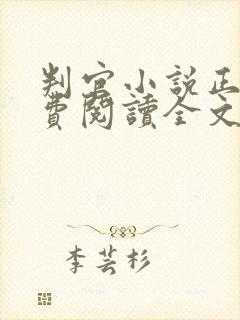 判官小説正
費閱讀全文
李芸杉